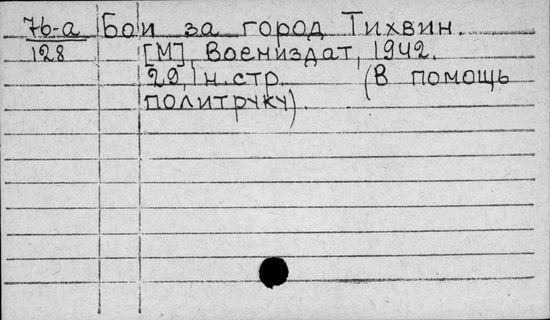 76-а Бои за город Тихвин.
128 [М], Воениздат, 1942.
29, 1 н. стр. (В помощь
политруку).